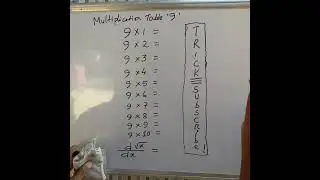 Multiplication Table '9'
9 × 1 =
9 × 2 =
9 × 3 =
9 × 4 =
9 × 5 =
9 × 6 =
9 × 7 =
9 × 8 =
9 × 9 =
9 × 10 =
d√x/dx =
TRICK
SUBSCRIBE!